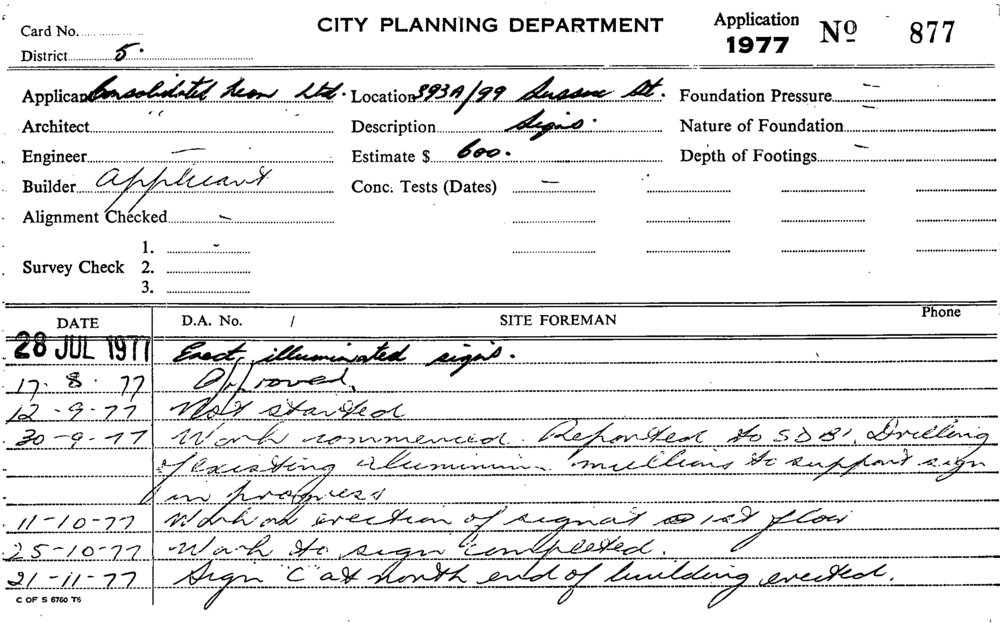 Card No. CITY PLANNING DEPARTMENT Application 1977 No 877
District 5.
Applicant Consolidated Neon Ltd. Location 393A/99 Sussex St. Foundation Pressure —
Architect " " Description Signs. Nature of Foundation —
Engineer — Estimate $ 600. Depth of Footings —
Builder Applicant Conc. Tests (Dates) —
Alignment Checked -
1. -
Survey Check 2.
3.
DATE D.A. No. / SITE FOREMAN Phone
28 JUL 1977 Erect illuminated signs.
17. 8. 77 Approved.
12-9-77 Not started
30-9-77 Work commenced. Reported to SDB1. Drilling
of existing aluminium mullions to support sign
in progress
11-10-77 Work on erection of sign at 1st floor
25-10-77 Work to sign completed.
21-11-77 Sign "C" at north end of building erected.
C OF S 6760 T6